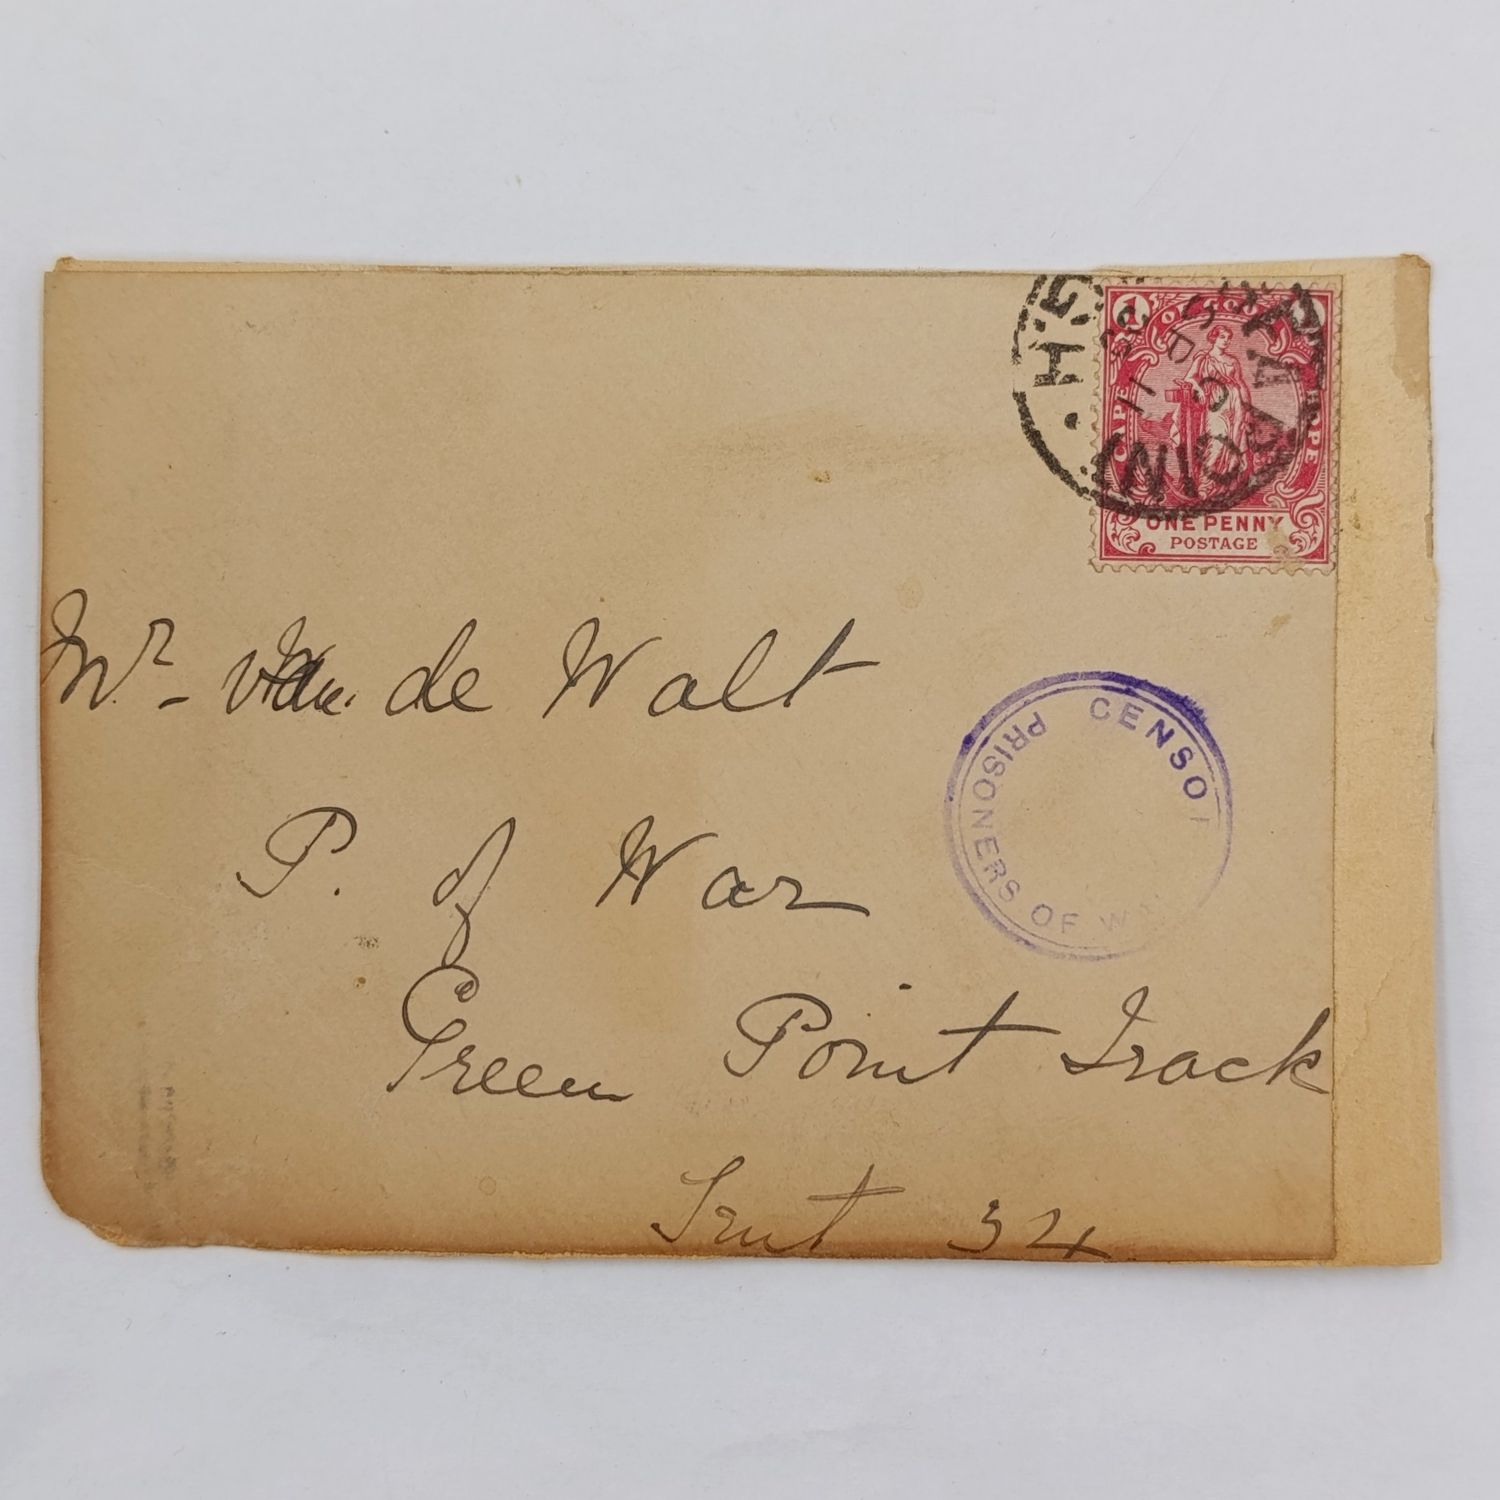 C.G.H.
POINT
1
OF GOOD
CAPE
HOPE
ONE PENNY
POSTAGE
Mr. van de Walt
CENSO
PRISONERS OF WA
P. of War
Green Point Track
Tent 34